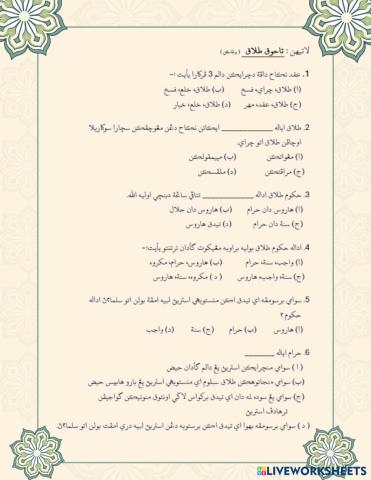 لاتيهن : تاحوق طلاق
1. عقد نكتاح داڤة دچرايكن دالم 3 ڤركارا يأيت :-
(ا) طلاق، چراي، فسخ (ب) طلاق، خلع، فسخ
(ج) طلاق، عقد، مهر (د) طلاق، خلع، خيار
2. طلاق اياله ____________ ايكاتن نكتاح دڠن مڠوچڤكن سچارا
اوچاڤن طلاق اتو چراي.
(ا) مڠواتكن (ب)
(ج) مراڤتكن (د)
3. حكوم طلاق اداله ____________ تتاڤي ساڠة دبنچي اوليه الله.
(ا) هاروس دان حرام (ب) هاروس دان حلال
(ج) سنة دان حرام (د) تيدق هاروس
4. اداله حكوم طلاق بوليه براوبه مڠيكوت كأدان ترتنتو يأيت:-
(ا) واجب، سنة، حرام (ب) هاروس، حرام، مكروه
(ج) سنة، واجب، هاروس (د) مكروه، سنة، هاروس
5. سوامي برسومڤه اي تيدق اكن منستوبهي استرين لبيه امڤة بولن اتو سلماڽ اداله
حكوم؟
(ا) هاروس (ب) حرام (ج) سنة (د) واجب
6. حرام اياله ________
(ا) سوامي منچرايكن استرين يڠ دالم كأدان حيض
(ب) سوامي منجاتوهكن طلاق سبلوم اي منستوبهي استرين يڠ بارو هابيس حيض
(ج) سوامي يڠ سوده دان اي تيدق بركواس لاݢي اونتوق منونيكن كواجيڤن
ترهادڤ استرين
(د) سوامي برسومڤه بهوا اي تيدق اكن برستوبه دڠن استرين لبيه دري امڤت بولن اتو سلماڽ.
LIVEWORKSHEETS